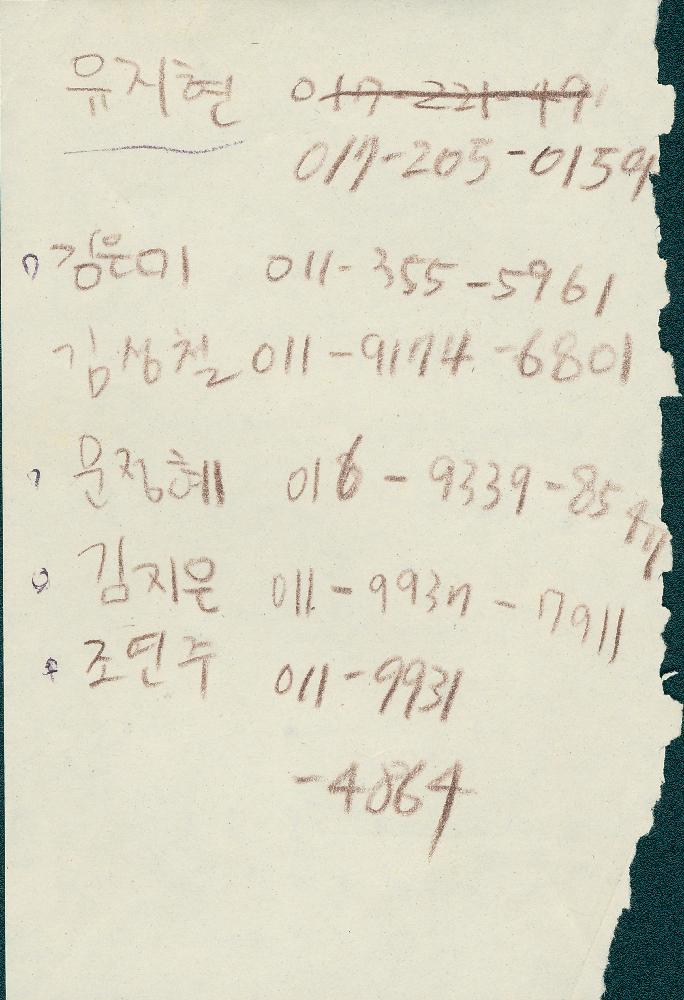 유지현 017-221-49
017-205-0159
김은미 011-355-5961
김성철 011-9174-6801
문정혜 016-9339-8547
김지은 011-9937-7911
조연주 011-9931
-4864